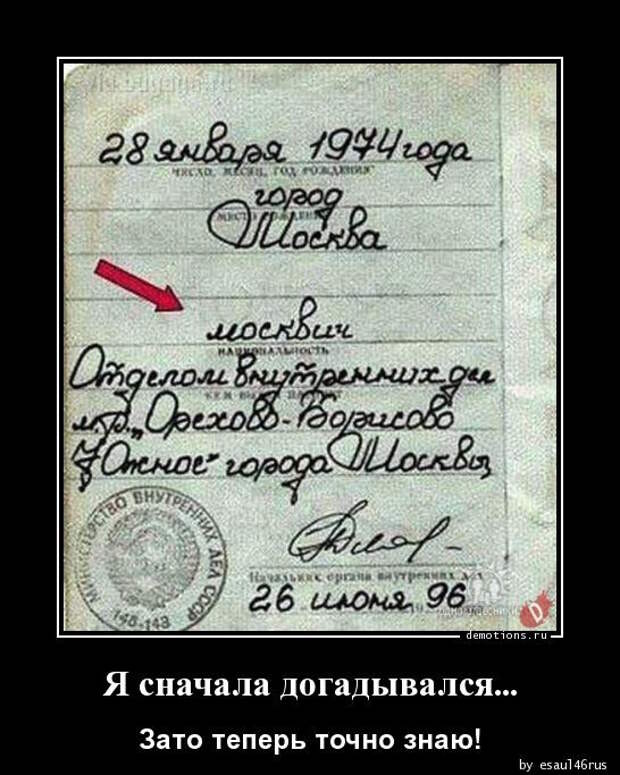 28 января 1974 года
число, месяц, год рождения
город
место рождения
Москва
москвич
национальность
Отделом внутренних дел
кем выдан паспорт
м.р. „Орехово-Борисово
Южное“ города Москвы
МИНИСТЕРСТВО ВНУТРЕННИХ ДЕЛ СССР
148-143
Начальник органа внутренних дел
26 июня 96
demotions.ru
Я сначала догадывался...
Зато теперь точно знаю!
by esaul46rus